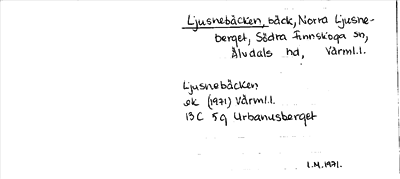 Ljusnebäcken, bäck, Norra Ljusne-
berget, Södra Finnskoga sn,
Älvdals hd, Värml.l.
Ljusnebäcken
ek (1971) Värml.l.
13C 5g Urbanusberget
I.M. 1971.